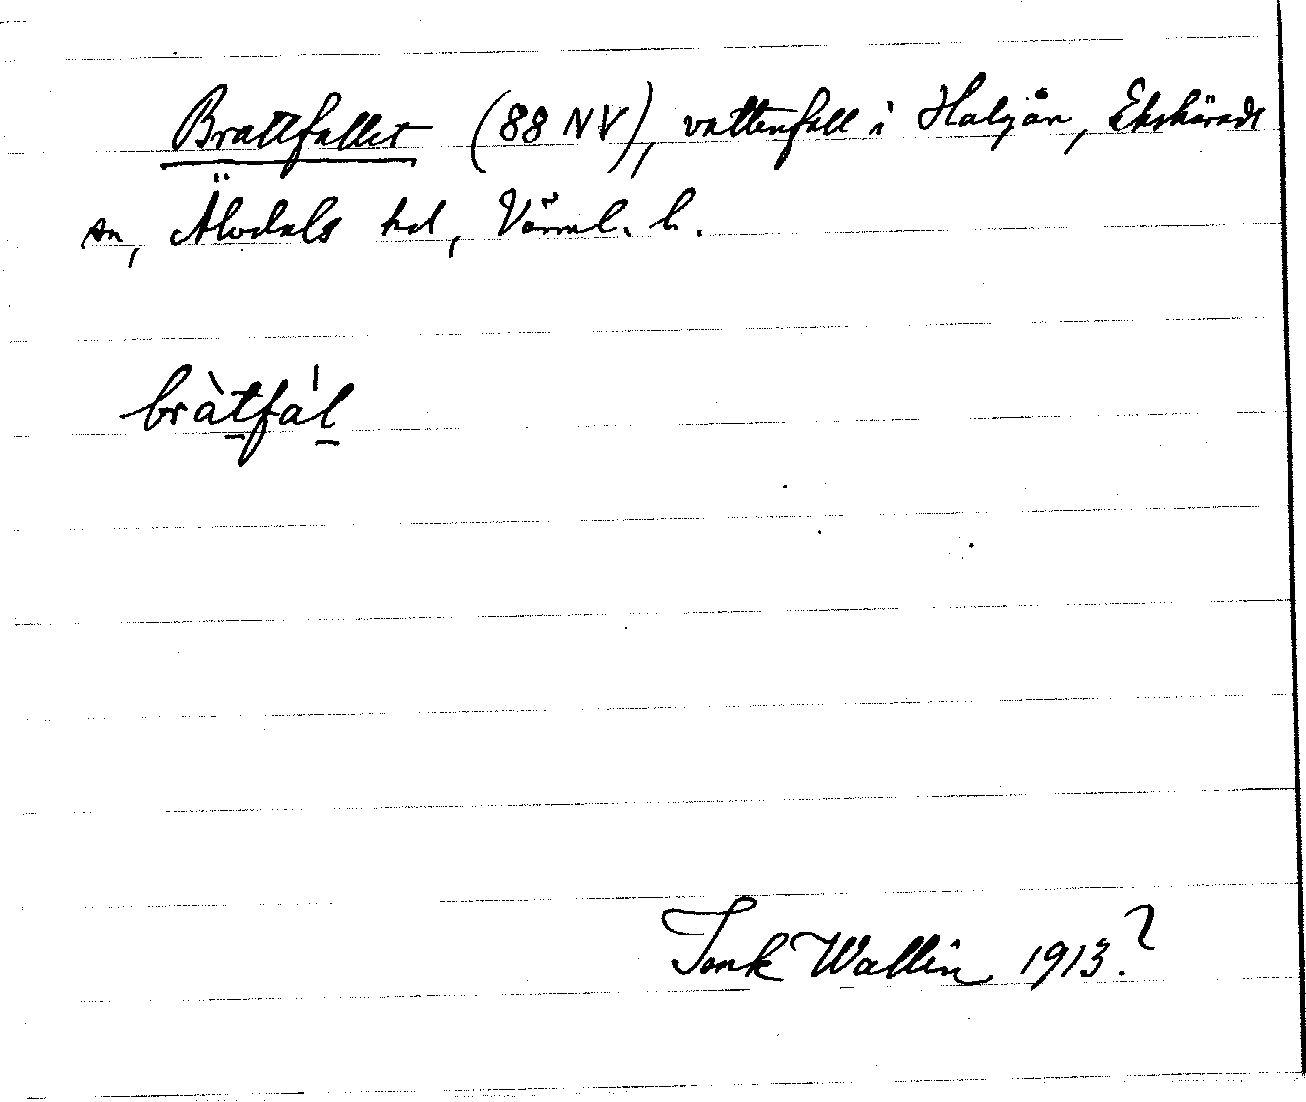 Brattfallet (88 NV), vattenfall i Halgån, Ekshärads
sn, Älvdals hd, Värml. l.
bràtfál
Tonk Wallin 1913?